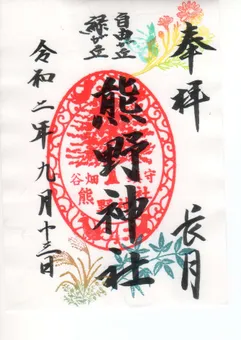 奉拝
長月
自由が丘
緑が丘
熊野神社
谷畑
守
熊
社
令和二年九月十三日